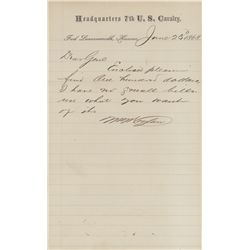 Headquarters 7th U.S. Cavalry,
Fort Leavenworth, Kansas, June 23d 1868
Dear Genl
Enclosed please
find One hundred dollars
I have no small bills
use what you want
of it